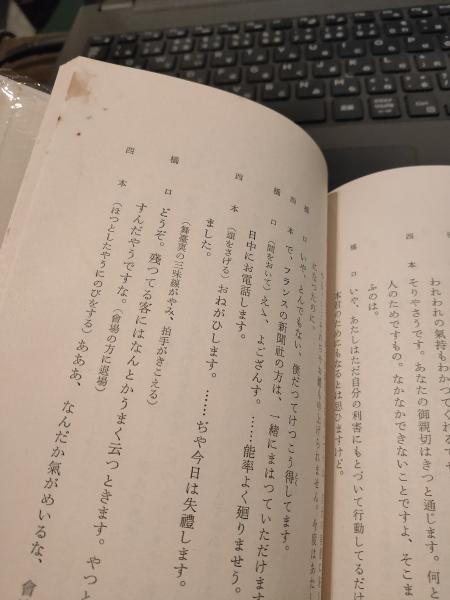 われわれの氣持もわかつてくれる
四本 そりやさうです。あなたの御親切はきつと通じます。何と
人のためですもの。なかなかできないことですよ、そこま
ふのは。
橋口 いや、あたしはただ自分の利害にもとづいて行動してるだけ
本のためにもなるとは思ひますけど。
になつたのに、
橋口 いや、とんでもない、僕だつてけつこう得してます。
四本 で、フランスの新聞社の方は、一緒にまはつていただけます
橋口 （間をおいて）えゝ、よござんす。……能率よく廻りませう。
日中にお電話します。
四本 （頭をさげる）おねがひします。……ぢや今日は失禮します。
ました。
（舞臺裏の三味線がやみ、拍手がきこえる）
橋口 どうぞ。殘つてる客にはなんとかうまく云つときます。やつと
すんだやうですな。（會場の方に退場）
四本 （ほつとしたやうにのびをする）あああ、なんだか氣がめいるな、會